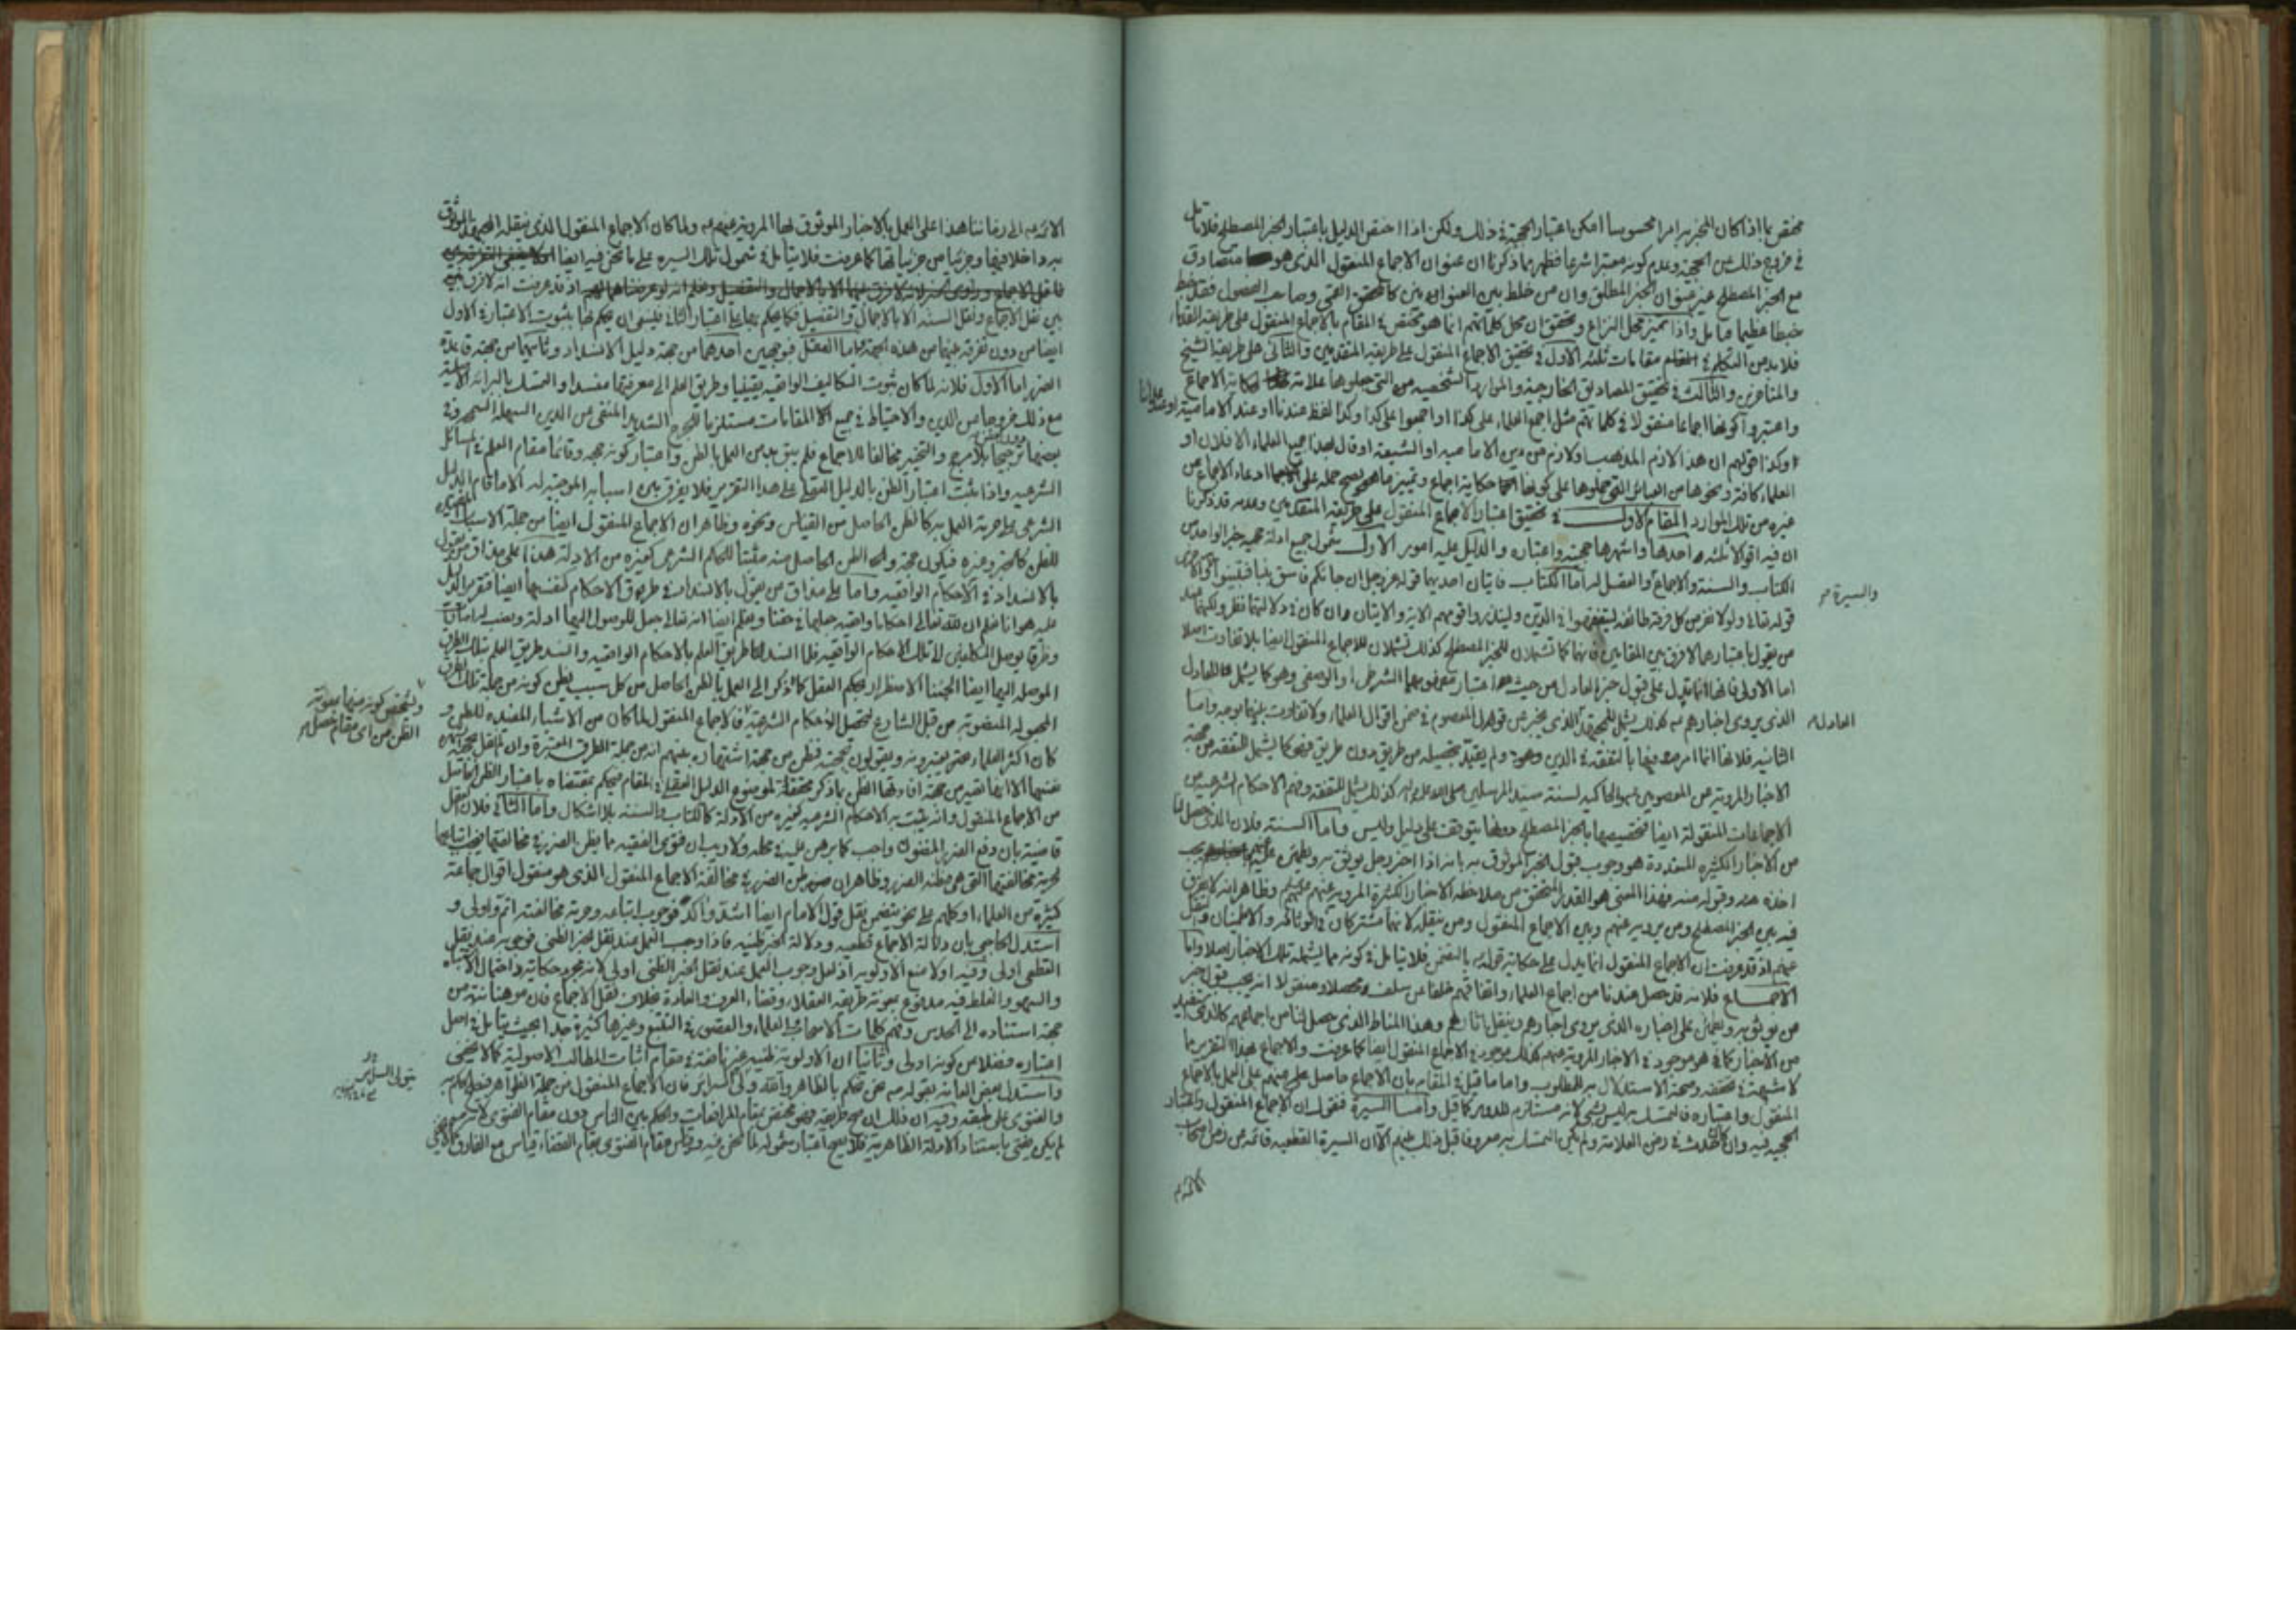 مختص بما اذا كان المخبر به امرا محسوسا امكن اعتبار الحجية في ذلك ولكن اذا اختص الدليل باعتبار الخبر المصطلح فلا تأمل
في خروج ذلك عن الحجية وعدم كونه معتبرا شرعا فظهر مما ذكرنا ان عنوان الاجماع المنقول الذي هو متصادق
مع الخبر المصطلح غير عنوان الخبر المطلق وان من خلط بين العنوانين كالمحقق القمي وصاحب الفصول فقد خبط
خبطا عظيما فتامل واذا تميز محل النزاع وتحقق ان محل كلماتهم انما هو مختص في المقام بالاجماع المنقول على طريقة القدماء
فلابد من التكلم في مقامات ثلثه الاول في تحقيق الاجماع المنقول على طريقة المتقدمين والثاني على طريقة الشيخ
والمتاخرين والثالث في تحقيق المصاديق الخارجية والموارد الشخصيه التي جعلوها حكاية الاجماع
واعتبروا كونها اجماعا منقولا في كلماتهم مثل اجمع العلماء على كذا او اجمعوا على كذا وكذا لفظ عندنا او عند الامامية او عند علمائنا
وكذا قولهم ان هذا لازم المذهب او لازم من دين الاماميه او الشيعة او قال بهذا جميع العلماء الا فلان او
العلماء كافة ونحوها من العبائر التي حملوها على كونها حكاية اجماع وتميز ما يصح حمله على ادعاء الاجماع من
غيره من تلك الموارد المقام الاول في تحقيق اعتبار الاجماع المنقول على طريقة المتقدمين وعدمه قد ذكرنا
ان فيه اقوالا ثلثه احدها واشهرها حجيته واعتباره والدليل عليه امور الاول شمول جميع ادلة حجيه خبر الواحد من
الكتاب والسنة والاجماع والعقل له اما الكتاب فايتان احديهما قوله عز وجل ان جائكم فاسق بنبا فتبينوا والاخرى
والسيرة
قوله تعالى ولولا نفر من كل فرقة طائفه ليتفقهوا في الدين ولينذروا قومهم الاية والايتان وان كان في دلالتهما نظر ولكنهما عند
من يقول باعتبارهما لا فرق بين المقامين فانهما كما تشملان للخبر المصطلح كذلك تشملان للاجماع المنقول ايضا بلا تفاوت اصلا
اما الاولى فلانها انما تدل على قبول خبر العادل من حيث اعتبار مفهومها الشرطي او الوصفي وهو كما يشمل للعادل
الذي يروي اخبارهم كذلك يشمل الذي يخبر عن قول المعصوم في ضمن اقوال العلماء ولا تفاوت بينهما بوجه واما
العادل
الثانيه فلانها انما امر فيها بالتفقه في الدين وهو ولم يقيد بتحصيله من طريق دون طريق فهي كما يشمل للتفقه من جهة
الاخبار المرويه عن المعصومين الحاكيه لسنة سيد المرسلين كذلك يشمل للتفقه وفهم الاحكام الشرعيه من
الاجماعات المنقولة ايضا فتخصيصها بالخبر المصطلح يتوقف على دليل وليس واما السنة فلان الذي حصل لنا
من الاخبار الكثيره المتعددة هو وجوب قبول الخبر الموثوق به بانه اذا اخبر رجل يوثق به ويطمئن عليه
اخذه منه وقبوله منه فهذا المعنى هو القدر المتحقق من ملاحظه الاخبار الكثيره المرويه عنهم وظاهر انه لا فرق
فيه بين الخبر المصطلح ومن يرويه عنهم وبين الاجماع المنقول ومن ينقله لانهما مشتركان في الوثاقة والاطمينان
عنهم اذ قد عرفت ان الاجماع المنقول انما يدل على حكاية قوله بالتضمن فلا تامل في كونه مما يشمله تلك الاخبار اصلا واما
الاجماع فلانه قد حصل عندنا من اجماع العلماء واتفاقهم خلفا عن سلف محصلا ومنقولا انه يجب قبول خبر
من يوثق به ويطمئن على اخباره الذي يروي اخبارهم وينقل اثارهم وهذا المناط الذي حصل لنا من اجماعهم
من الاخبار كما هو موجود في الاخبار المرويه عنهم كذلك موجود في الاجماع المنقول ايضا كما عرفت والاجماع بهذا التقرير مما
لا شبهة في تحققه وصحة الاستدلال به للمطلوب واما ما قيل في المقام بان الاجماع حاصل منهم على العمل بالاجماع
المنقول واعتباره فالتمسك به ليس بشئ لانه مستلزم للدور كما قيل واما السيرة فنقول ان الاجماع المنقول واعتبار
الحجيه فيه وان كان حدث في زمن العلامة ولم يكن التمسك به معروفا قبل ذلك الا ان السيرة القطعيه قائمة من زمن
الائمة
الائمة الى زماننا هذا على العمل بالاخبار الموثوق بها المروية عنهم ولما كان الاجماع المنقول الذي ينقله
داخلا فيها وجزئيا من جزئياتها كما عرفت فلا تامل في شمول تلك السيره على ما نحن فيه ايضا
اذ قد عرفت انه لا فرق
بين نقل الاجماع ونقل السنة الا بالاجمال والتفصيل فكما يحكم باعتبار الثاني فينبغي ان يحكم بثبوت الاعتبار في الاول
ايضا من دون تفرقة بينهما من هذه الجهة واما العقل فبوجهين احدهما من جهة دليل الانسداد وثانيهما من جهة قاعدة
الضرر اما الاول فلانه لما كان ثبوت التكاليف الواقعيه يقينيا وطريق العلم الى معرفتها منسدا والتمسك بالبرائة الاصلية
مع ذلك خروجا من الدين والاحتياط في جميع المقامات مستلزما للحرج الشديد المنفي من الدين السهلة السمحة
بعضها ترجيحا بلا مرجح والتخيير مخالفا للاجماع فلم يبق بد من العمل بالظن واعتبار كونه حجة وقائما مقام العلم في المسائل
الشرعيه واذا ثبت اعتبار الظن بالدليل العقلي على هذا التقرير فلا يفرق بين اسبابه الموجبة له الا ما قام الدليل
الشرعي على حرمة العمل به كالظن الحاصل من القياس ونحوه وظاهر ان الاجماع المنقول ايضا من جملة الاسباب المفيدة
للظن كالخبر وغيره فيكون حجة والظن الحاصل منه مثبتا للحكم الشرعي كغيره من الادلة هذا على مذاق من يقول
بالانسداد في الاحكام الواقعيه واما على مذاق من يقول بالانسداد في طريق الاحكام كنفسها ايضا فتقرير الدليل
عليه هو انا نعلم ان لله تعالى احكاما واقعيه جعلها في حقنا ونعلم ايضا انه تعالى جعل للوصول اليها ادلة ونصب امارات
وطرقا يوصل المكلفين الى تلك الاحكام الواقعيه فلما انسد لنا طريق العلم بالاحكام الواقعيه وانسد طريق العلم بتلك الطرق
الموصله اليها ايضا الجئنا الاضطرار بحكم العقل كما ذكر الى العمل بالظن الحاصل من كل سبب يظن كونه من جملة تلك الطرق
المجعوله المنصوبة من قبل الشارع لتحصيل الاحكام الشرعية فالاجماع المنقول لما كان من الاشياء المفيده للظن و
كان اكثر العلماء معتبرينه ويقولون بحجيته فظن من جهة اشتهاره بينهم انه من جملة الطرق المعتبرة
من الاجماع المنقول وانه يثبت به الاحكام الشرعيه كغيره من الادلة كالكتاب والسنة بلا اشكال واما الثاني فلان العقل
قاضية بان دفع الضرر المظنون واجب كما برهن عليه في محله ولا ريب ان فتوى الفقيه مما يظن الضرر في مخالفتها فيجب اتباعها
لحرمة مخالفتها التي هي مظنة الضرر وظاهر ان ظن الضرر في مخالفة الاجماع المنقول الذي هو منقول اقوال جماعة
كثيرة من العلماء او كلهم على نحو يتضمن نقل قول الامام ايضا اشد واكد فوجوب اتباعه وحرمة مخالفته اتم واولى و
استدل الحاجبي بان دلالة الاجماع قطعيه ودلالة الخبر ظنيه فاذا وجب العمل عند نقل الخبر الظني فوجوبه عند نقل
القطعي اولى وفيه اولا منع الاولوية اذ لعل وجوب العمل عند نقل الخبر الظني اولى لانه مجرد حكاية واحتمال الاشتباه
والسهو والغلط فيه مدفوع بمعونة طريقة العقلاء وقضاء العرف والعادة بخلاف نقل الاجماع فان موهناته من
جهة استناده الى الحدس وفهم كلمات الاصحاب العلماء والقصور في التتبع وغيرها كثيرة جدا بحيث يتامل في اصل
اعتباره فضلا من كونه اولى وثانيا ان الاولوية ظنيه غير ناهضة في مقام اثبات المطالب الاصولية كما لا يخفى
واستدل بعض العامة بقوله نحن نحكم بالظاهر والله ولي السرائر فان الاجماع المنقول من جملة الظواهر
والفتوى على طبقه وفيه ان ذلك ان صح طريقه فهو مختص بمقام المرافعات والحكم بين الناس دون مقام الفتوى
لم يكن يفتي باستناد الادلة الظاهرية فلا يصح اعتبار شموله لما نحن فيه وقياس مقام الفتوى بمقام القضاء قياس مع الفارق
كونه منها بمعونة
الظن من اي مقام حصل
يتولى السرائر